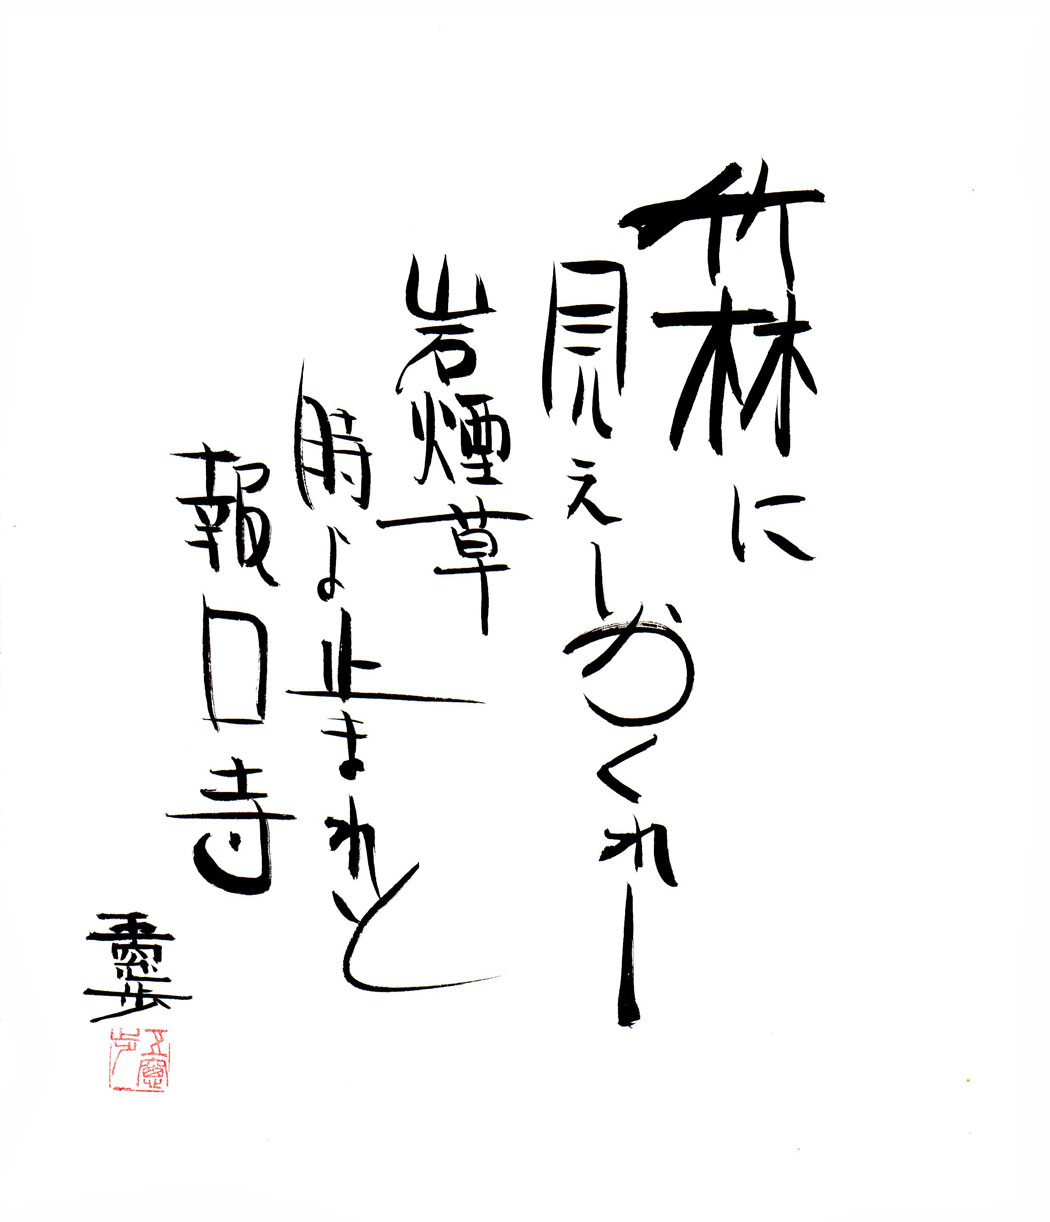 竹林に
見えしかくれし
岩煙草
時よ止まれと
報口寺